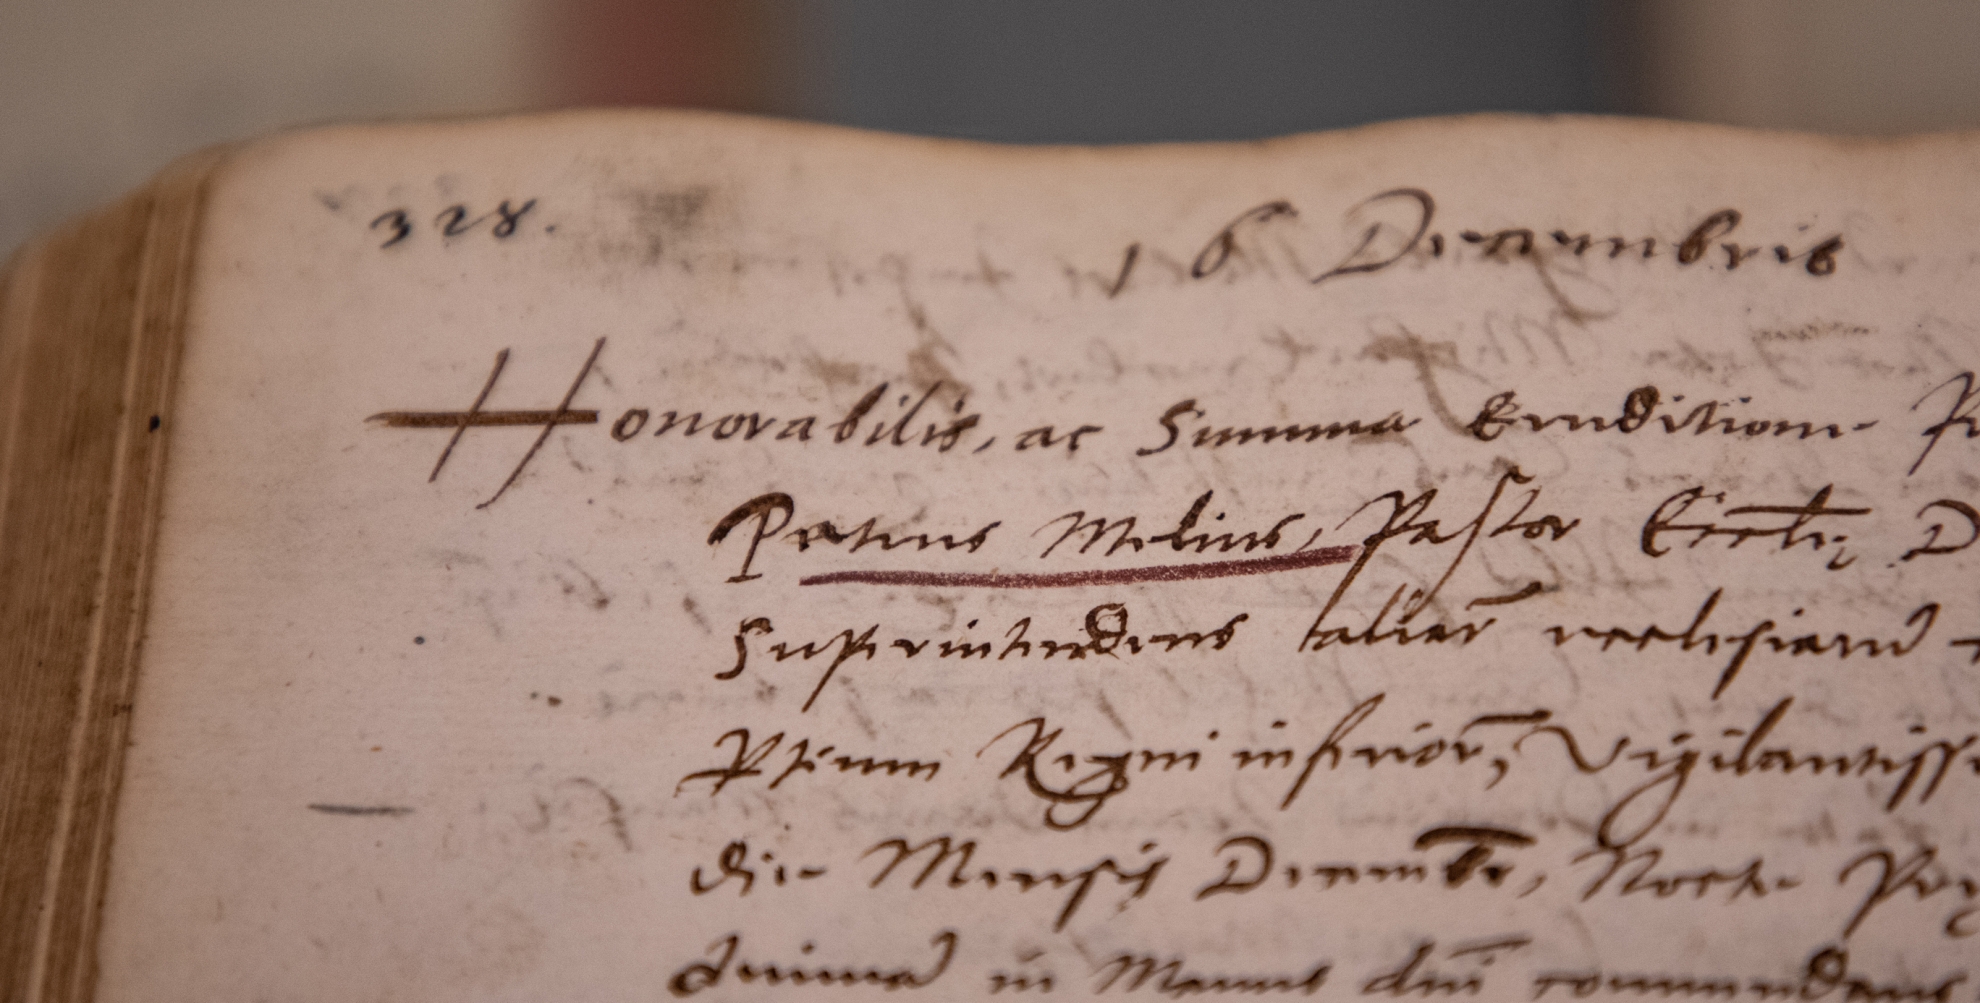 328.
16 Decembris
Honorabilis, ac Summa Eruditione
Petrus Melius, Pastor Eccle:
Superintendens aliar ecclesiarum
Ptium Regni inferior, Vigilantiss
die Mensis Decembr, Nocte
Animā in Manus dm̄ commendans